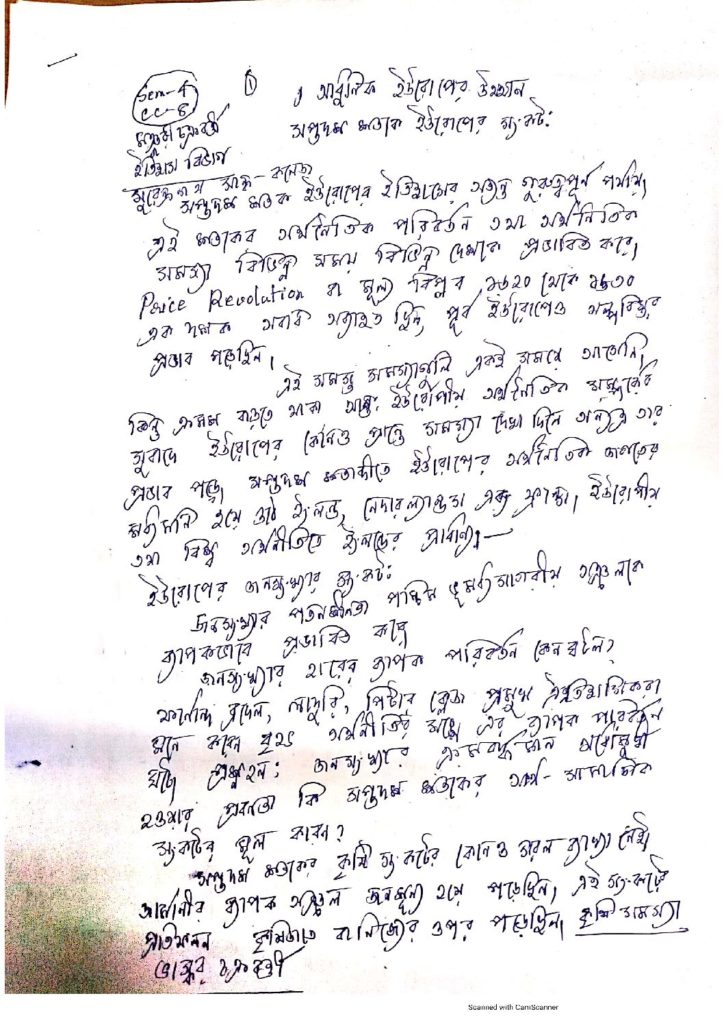 Sem-4
CC-8
①
১ আধুনিক ইউরোপের উত্থান
সপ্তদশ শতকে ইউরোপের সংকট:
চক্রবর্তী
ইতিহাস বিভাগ
সুরেন্দ্রনাথ সান্ধ্য-কলেজ
সপ্তদশ শতক ইউরোপের ইতিহাসের অত্যন্ত গুরুত্বপূর্ণ পর্যায়।
এই শতকের অর্থনৈতিক পরিবর্তন তথা অর্থনৈতিক
সমস্যা বিভিন্ন সময় বিভিন্ন দেশকে প্রভাবিত করে।
Price Revolution বা মূল্য বিপ্লব ১৬২০ থেকে ১৬৩০
এক দশক অবধি অব্যাহত ছিল, পূর্ব ইউরোপেও অল্পবিস্তর
প্রভাব পড়েছিল।
এই সমস্ত সমস্যাগুলি একই সময়ে আসেনি,
কিন্তু ক্রমশ বাড়তে থাকা আন্তঃ ইউরোপীয় অর্থনৈতিক সম্পর্কের
সুবাদে ইউরোপের কোনও প্রান্তে সমস্যা দেখা দিলে অন্যত্র তার
প্রভাব পড়ে। সপ্তদশ শতাব্দীতে ইউরোপের অর্থনৈতিক জগতের
মধ্যমনি হয়ে ওঠে ইংলন্ড, নেদারল্যান্ডস এবং ফ্রান্স। ইউরোপীয়
তথা বিশ্ব অর্থনীতিতে ইংলন্ডের প্রাধান্য।—
ইউরোপের জনসংখ্যার সংকট:
জনসংখ্যার পতনশীলতা পশ্চিম ভূমধ্যসাগরীয় অঞ্চলকে
ব্যাপকভাবে প্রভাবিত করে
জনসংখ্যার হারের ব্যাপক পরিবর্তন কেন ঘটল?
ফার্নান্দ ব্রদেল, লাদুরি, পিটার ক্লেজ প্রমুখ ঐতিহাসিকরা
মনে করেন মুখ্য অর্থনীতির সঙ্গে এর ব্যাপক পরিবর্তন
ঘটে প্রশ্ন হল: জনসংখ্যার ক্রমবর্ধমান অধোমুখী
হওয়ার প্রবনতা কি সপ্তদশ শতকের অর্থ-সামাজিক
সংকটের মূল কারণ?
সপ্তদশ শতকের কৃষি সংকটের কোনও সরল ব্যাখ্যা নেই।
জার্মানীর ব্যাপক অঞ্চল জনশূন্য হয়ে পড়েছিল, এই সংকটের
প্রতিফলন কৃষিজাত বানিজ্যের ওপর পড়েছিল। কৃষি সমস্যা
ভাস্কর চক্রবর্তী
Scanned with CamScanner